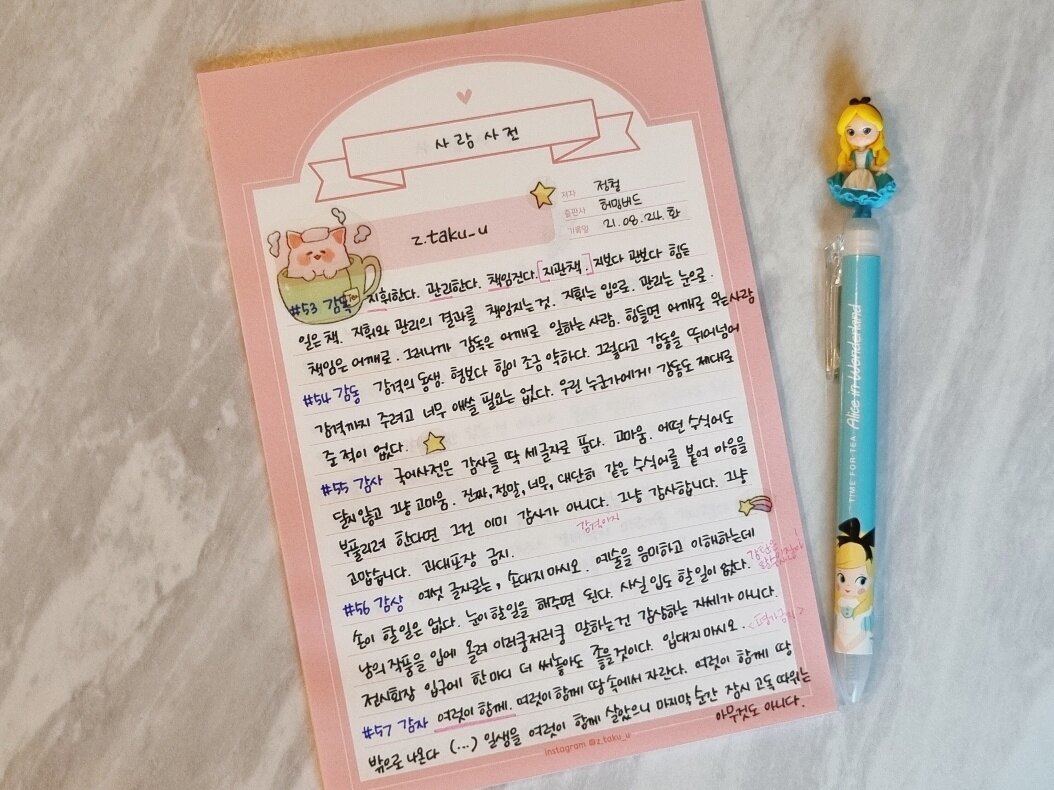 사람 사전
저자 정철
출판사 허밍버드
기록일 21.08.24.화
z.taku_u
#53 감독 지휘한다. 관리한다. 책임진다. [지관책.] 지보다 관보다 힘든
일은 책. 지휘와 관리의 결과를 책임지는 것. 지휘는 입으로. 관리는 눈으로.
책임은 어깨로. 그러니까 감독은 어깨로 일하는 사람. 힘들면 어깨로 우는 사람
#54 감동 감격의 동생. 형보다 힘이 조금 약하다. 그렇다고 감동을 뛰어넘어
감격까지 주려고 너무 애쓸 필요는 없다. 우린 누군가에게 감동도 제대로
준 적이 없다.
#55 감사 국어사전은 감사를 딱 세 글자로 푼다. 고마움. 어떤 수식어도
달지 않고 그냥 고마움. 진짜, 정말, 너무, 대단히 같은 수식어를 붙여 마음을
부풀리려 한다면 그건 이미 감사가 아니다. 그냥 감사합니다. 그냥
고맙습니다. 과대포장 금지.
감격이지
#56 감상 여섯 글자로는, 손대지 마시오. 예술을 음미하고 이해하는데
손이 할 일은 없다. 눈이 할 일을 해주면 된다. 사실 입도 할 일이 없다.
남의 작품을 입에 올려 이러쿵저러쿵 말하는 건 감상하는 자세가 아니다.
<평가금지>
전시회장 입구에 한 마디 더 써놓아도 좋을 것이다. 입대지 마시오.
#57 감자 여럿이 함께. 여럿이 함께 땅 속에서 자란다. 여럿이 함께 땅
밖으로 나온다 (...) 일생을 여럿이 함께 살았으니 마지막 순간 잠시 고독 따위는
아무것도 아니다.
instagram @z_taku_u
TIME FOR TEA Alice in Wonderland